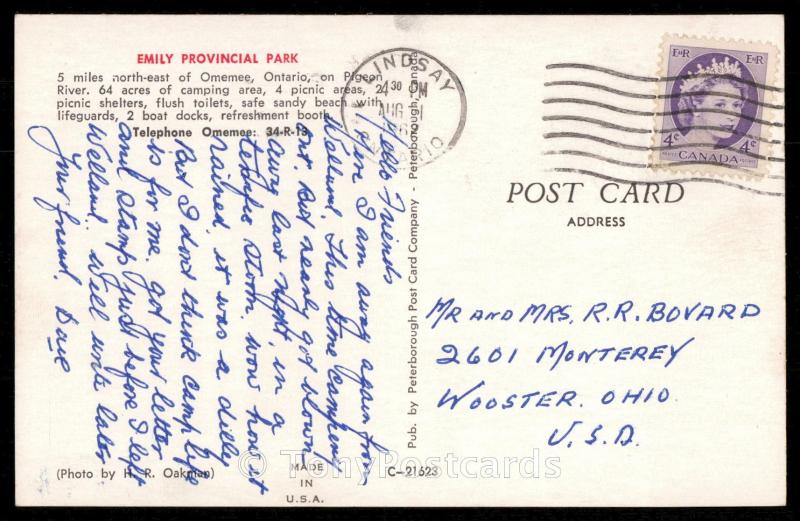 EMILY PROVINCIAL PARK
5 miles north-east of Omemee, Ontario, on Pigeon
River. 64 acres of camping area, 4 picnic areas, 2
picnic shelters, flush toilets, safe sandy beach with
lifeguards, 2 boat docks, refreshment booth.
Telephone Omemee: 34-R-13
Hello Friends
Here I am away again from
Welland. This time camping
out. But nearly got blown
away last night, in a
terrific storm, wow how it
rained, it was a dilly
But I don't think camp life
is for me. got your letter
and stamps just before I left
Welland. Will write later
Your friend, Dave
(Photo by H. R. Oakman)
MADE
IN
U.S.A.
Pub. by Peterborough Post Card Company - Peterborough, Canada
C-21623
LINDSAY
430 PM
AUG
ONTARIO
EIIR EIIR
4c 4c
POSTES POSTAGE
CANADA
POST CARD
ADDRESS
MR AND MRS. R.R. BOVARD
2601 MONTEREY
WOOSTER. OHIO.
U.S.A.
© TonyPostcards